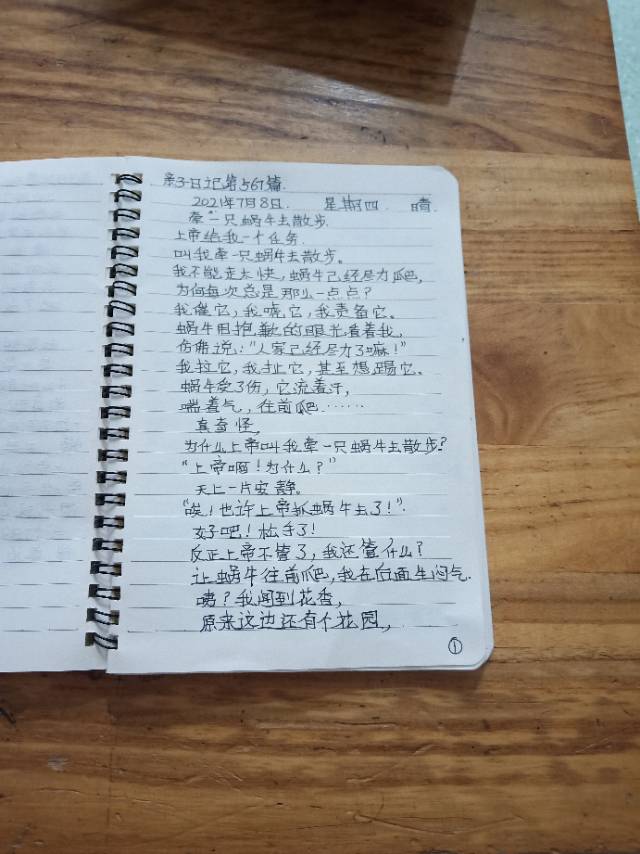 亲子日记第567篇.
2021年7月8日. 星期四. 晴.
牵一只蜗牛去散步.
上帝给我一个任务.
叫我牵一只蜗牛去散步。
我不能走太快,蜗牛已经尽力爬,
为何每次总是那么一点点?
我催它,我唬它,我责备它。
蜗牛用抱歉的眼光看着我,
仿佛说:“人家已经尽力了嘛!”
我拉它,我扯它,甚至想踢它。
蜗牛受了伤,它流着汗,
喘着气,往前爬……
真奇怪,
为什么上帝叫我牵一只蜗牛去散步?
“上帝啊!为什么?”
天上一片安静。
“唉!也许上帝抓蜗牛去了!”.
好吧!松手了!
反正上帝不管了,我还管什么?
让蜗牛往前爬,我在后面生闷气.
咦?我闻到花香,
原来这边还有个花园,
①